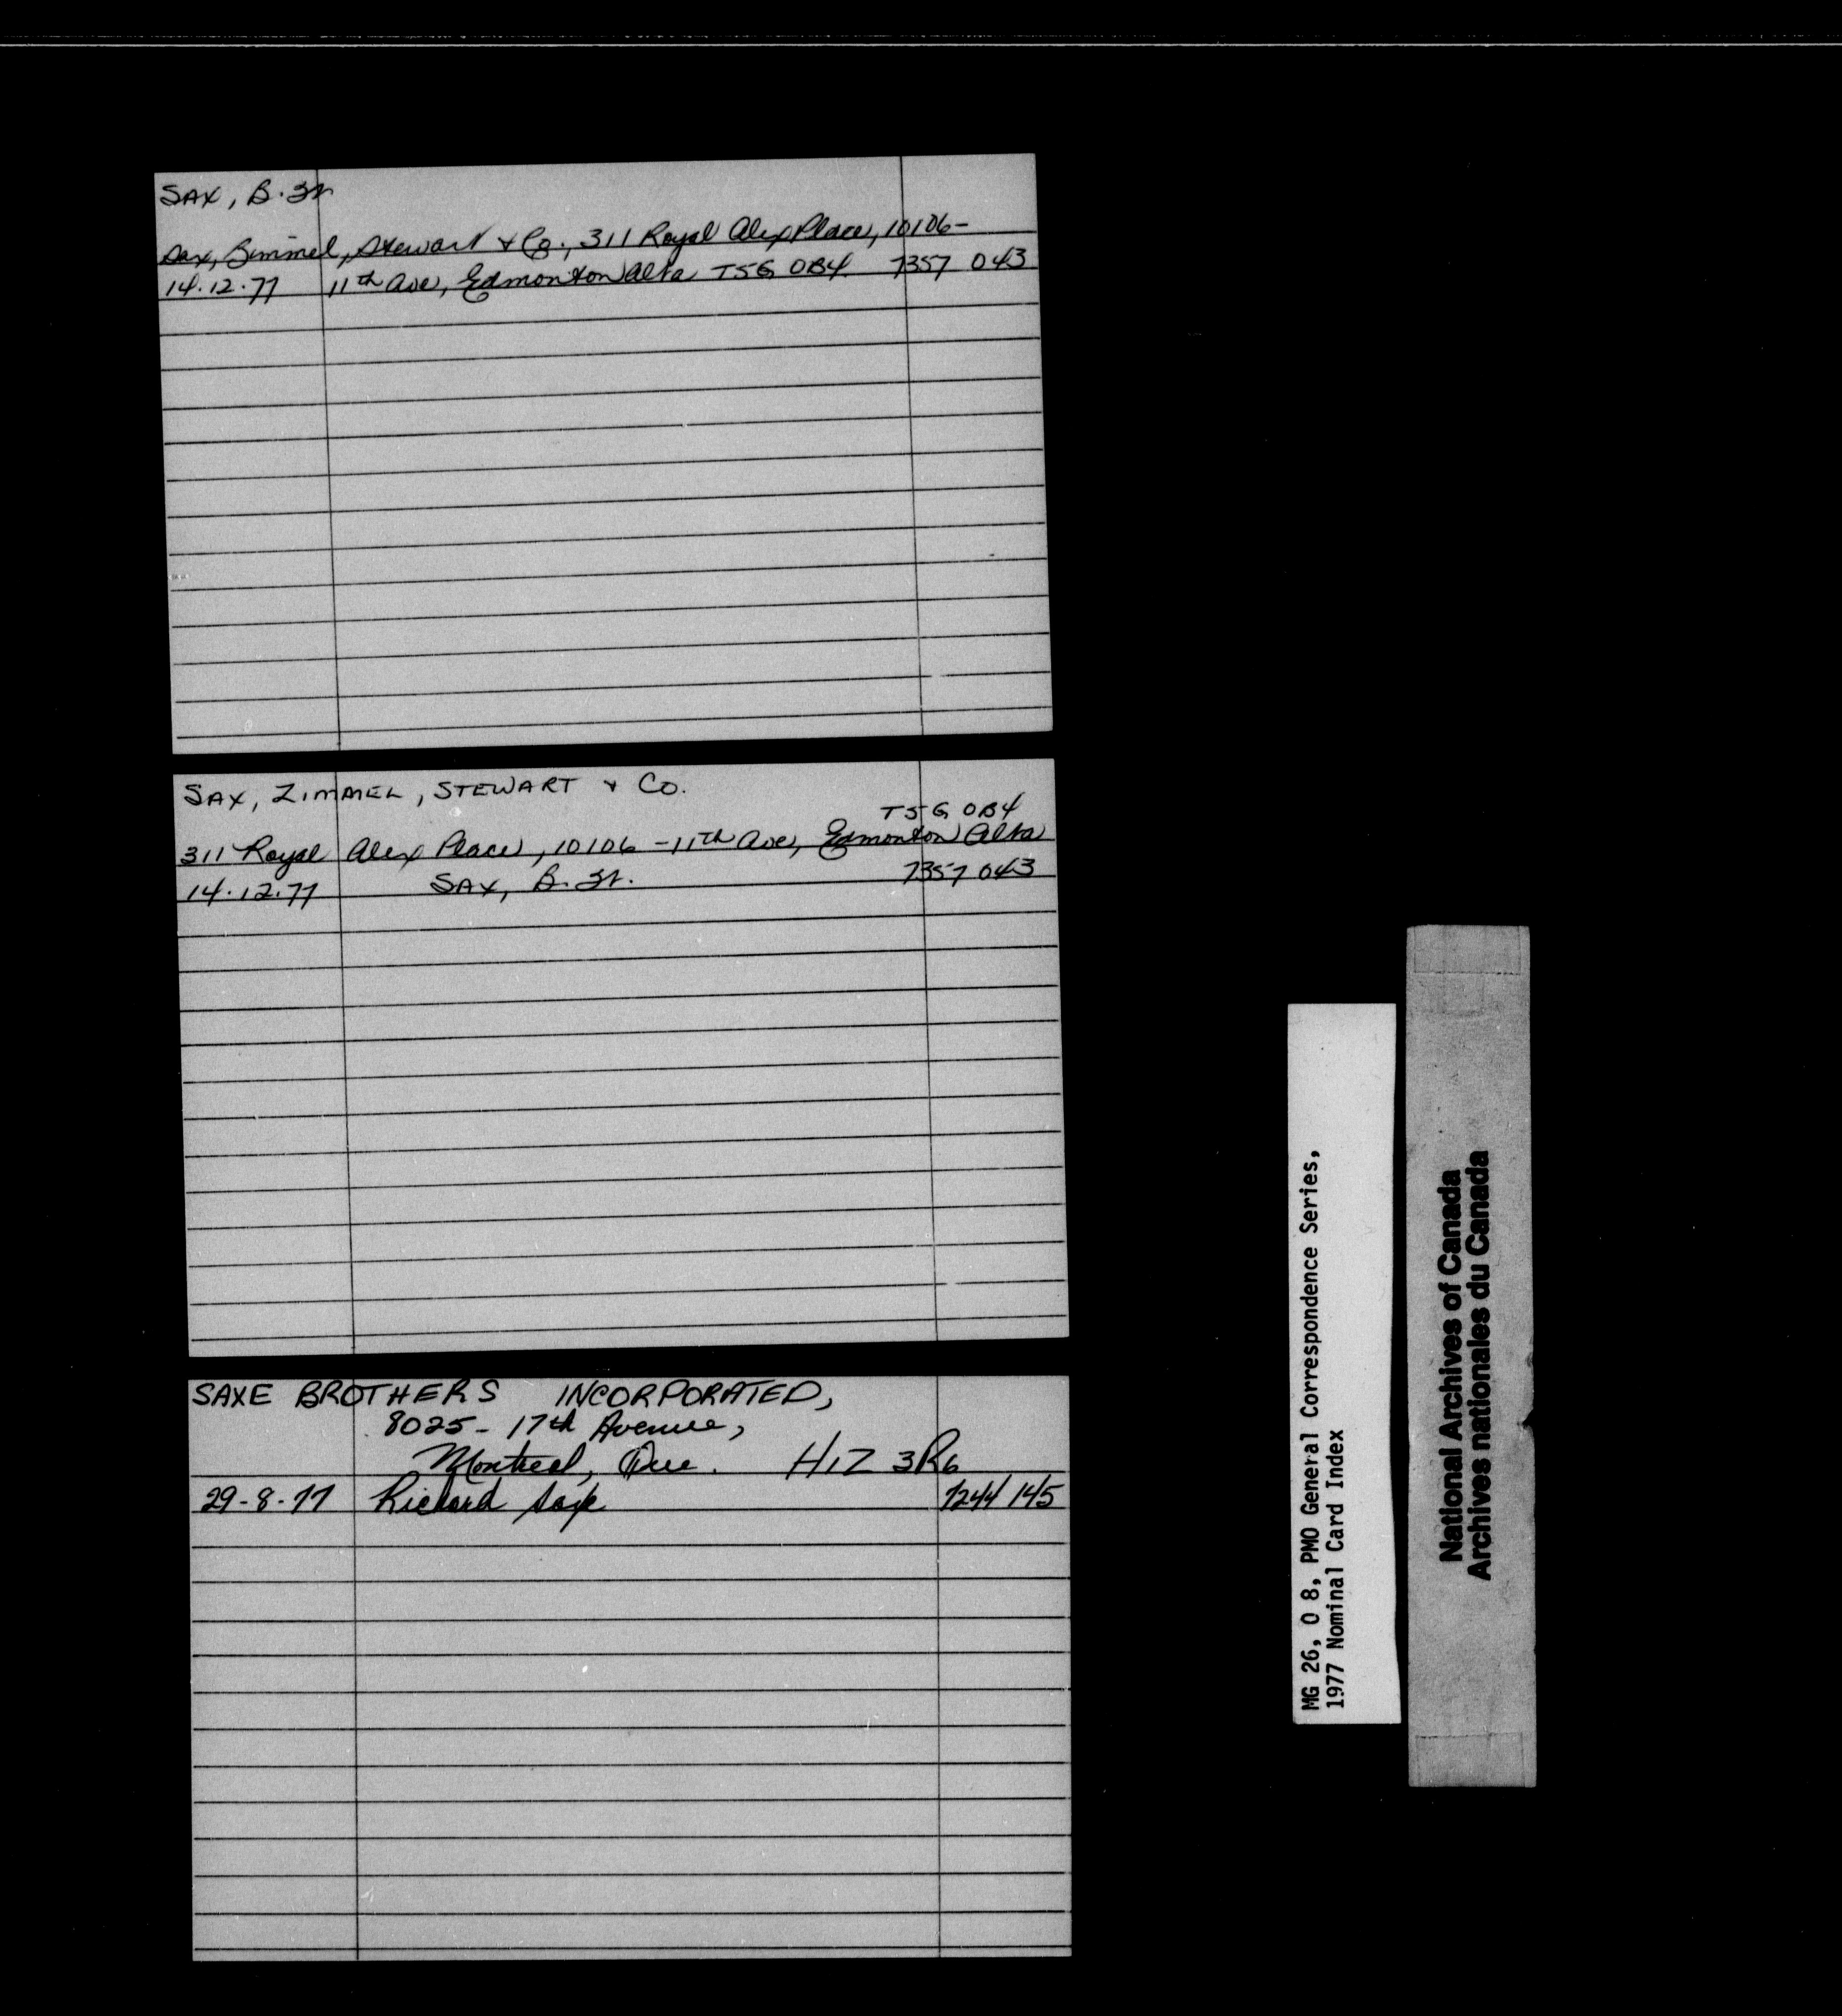 SAX, B.
Sax, Zimmel, Stewart & Co., 311 Royal Alex Place, 10106-
14.12.77 11th Ave, Edmonton Alta T5G 0B4 7357 043
SAX, ZIMMEL, STEWART & CO.
T5G 0B4
311 Royal Alex Place, 10106 - 11th Ave, Edmonton Alta
14.12.77 SAX, B. 7357 043
SAXE BROTHERS INCORPORATED,
8025 - 17th Avenue,
Montreal, Que. H1Z 3R6
29-8-77 Richard Saxe 7244 145
MG 26, O 8, PMO General Correspondence Series,
1977 Nominal Card Index
National Archives of Canada
Archives nationales du Canada